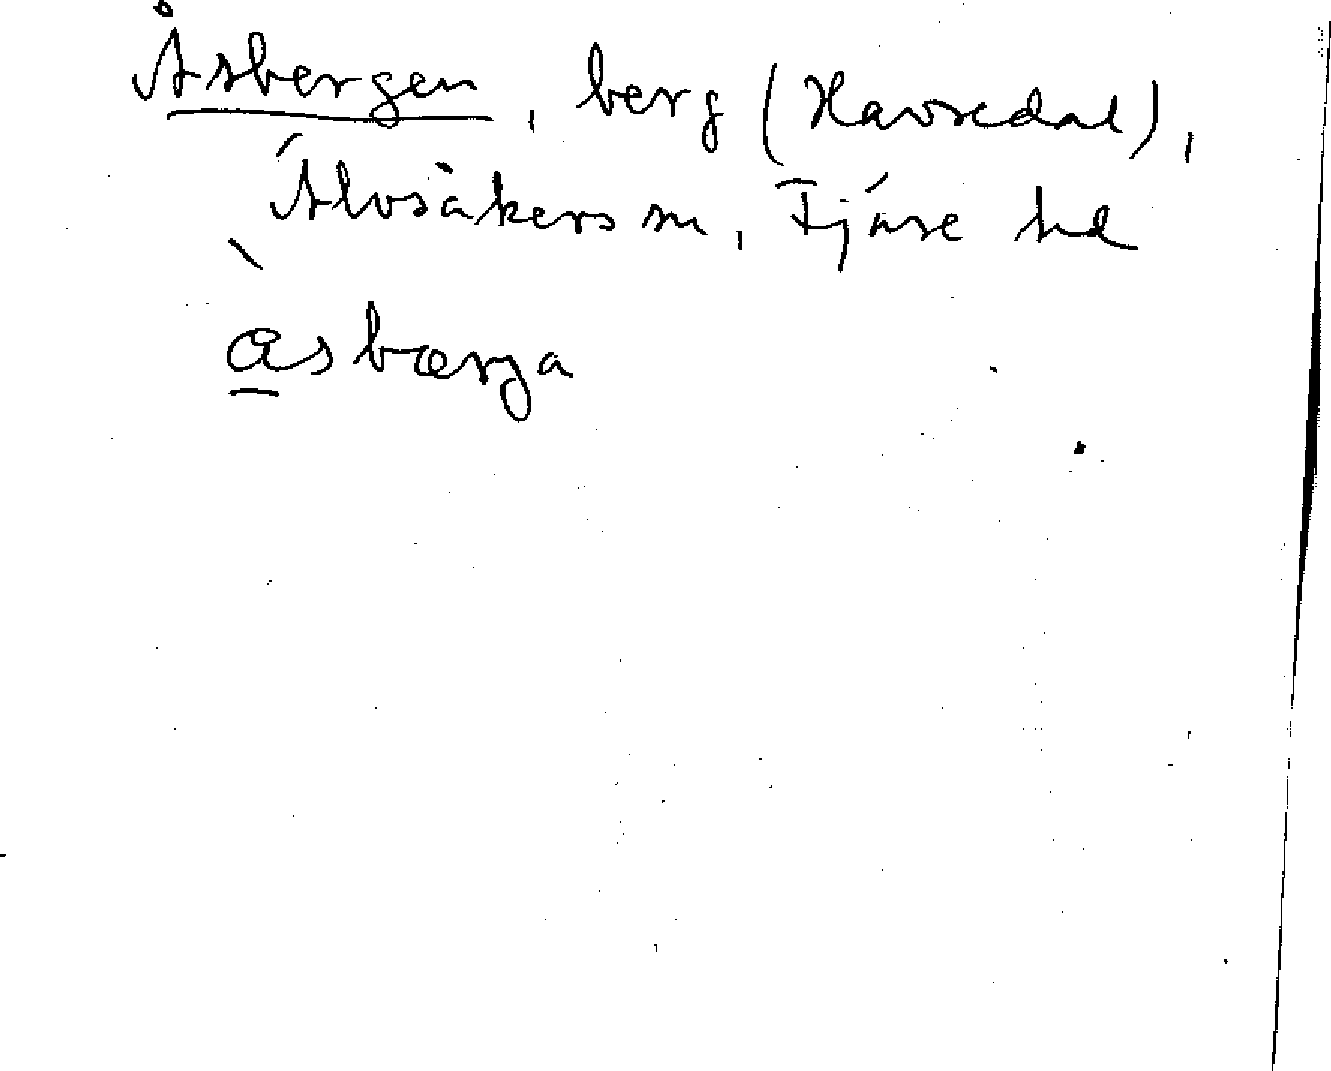 Åsbergen, berg (Havredal),
Älvsåkers sn, Fjäre hd
`åsbærja